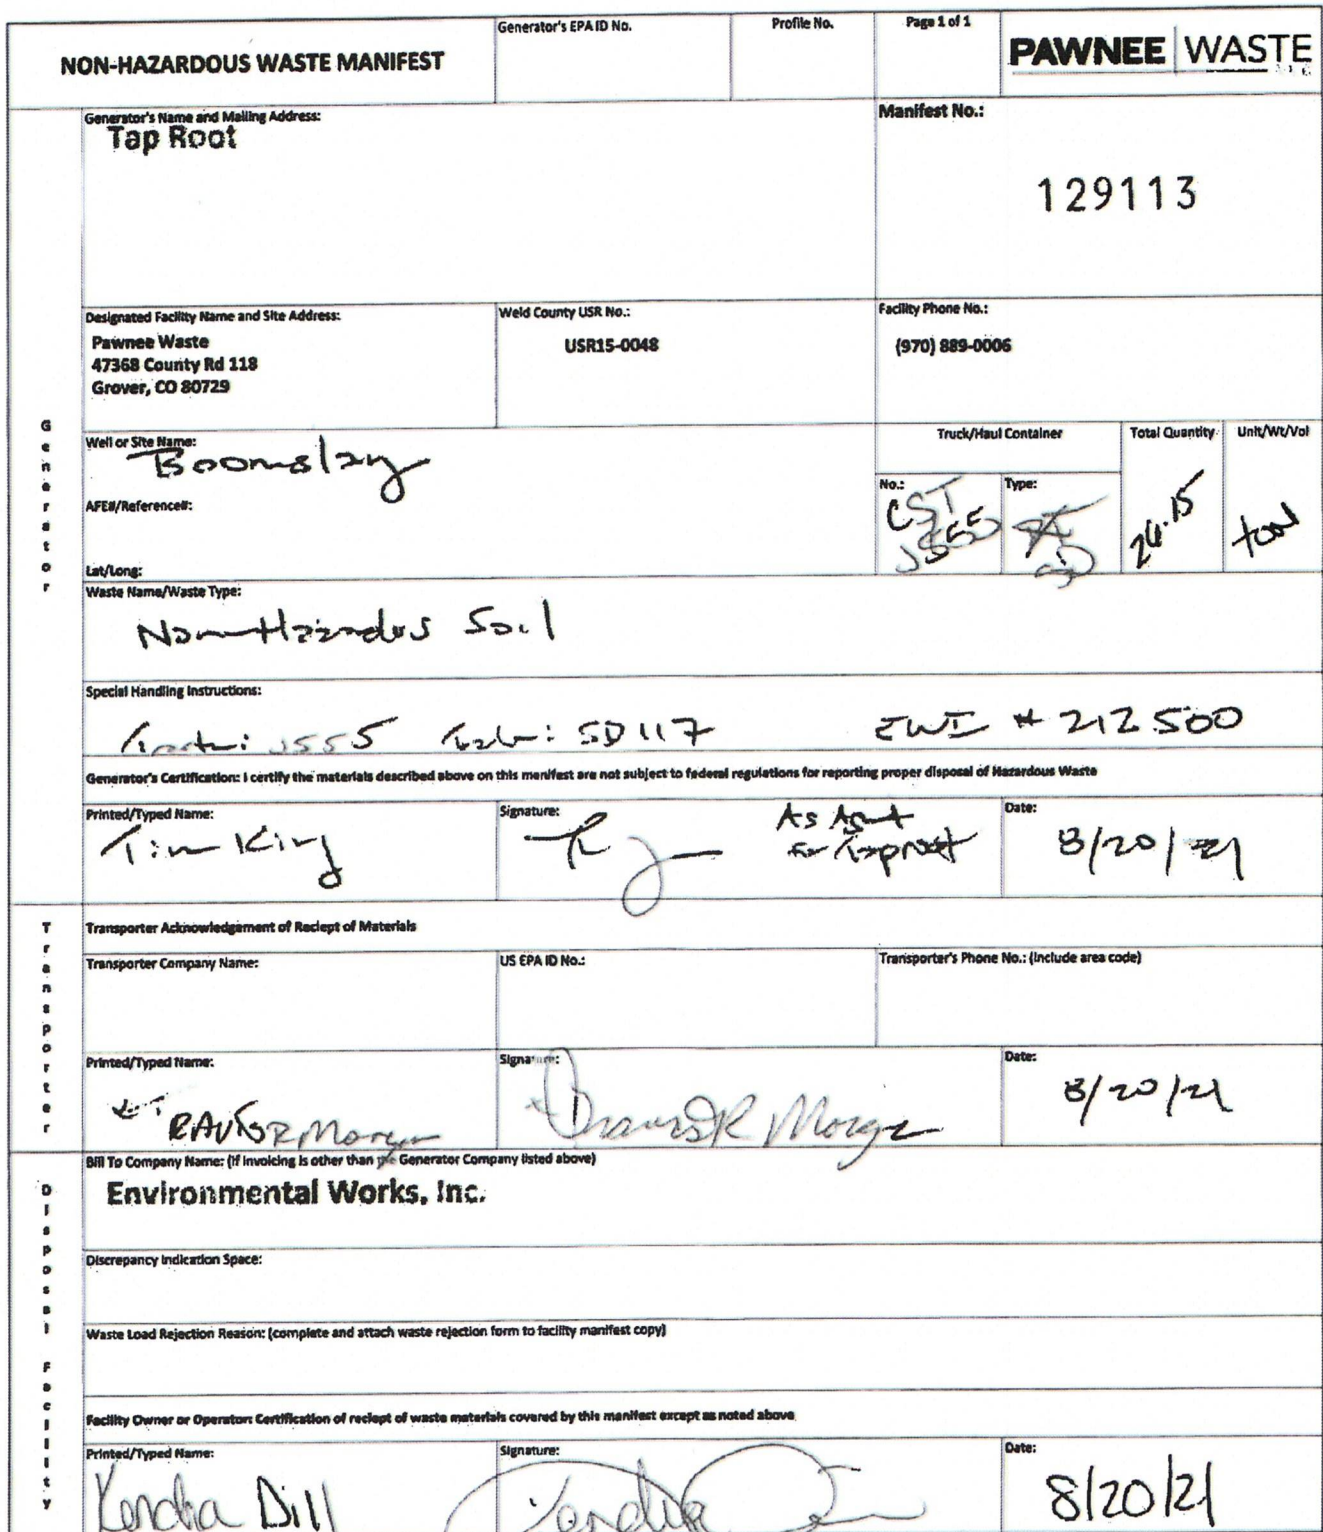 NON-HAZARDOUS WASTE MANIFEST
Generator's EPA ID No.
Profile No.
Page 1 of 1
PAWNEE WASTE LLC
Generator's Name and Mailing Address:
Tap Root
Manifest No.:
129113
Designated Facility Name and Site Address:
Pawnee Waste
47368 County Rd 118
Grover, CO 80729
Weld County USR No.:
USR15-0048
Facility Phone No.:
(970) 889-0006
Generator
Well or Site Name:
Boomslang
AFE#/Reference#:
Lat/Long:
Truck/Haul Container
No.:
CST
J555
Type:
Total Quantity
26.15
Unit/Wt/Vol
ton
Waste Name/Waste Type:
Non-Hazardus Soil
Special Handling Instructions:
Tractor: J555 Trailer: SD117 EWI # 212500
Generator's Certification: I certify the materials described above on this manifest are not subject to federal regulations for reporting proper disposal of Hazardous Waste
Printed/Typed Name:
Tim King
Signature:
As Agent
for Taproot
Date:
8/20/21
Transporter
Transporter Acknowledgement of Reciept of Materials
Transporter Company Name:
US EPA ID No.:
Transporter's Phone No.: (include area code)
Printed/Typed Name:
TRAVIS R Morgan
Signature:
Travis R Morgan
Date:
8/20/21
Disposal Facility
Bill To Company Name: (if invoicing is other than the Generator Company listed above)
Environmental Works, Inc.
Discrepancy Indication Space:
Waste Load Rejection Reason: (complete and attach waste rejection form to facility manifest copy)
Facility Owner or Operator: Certification of reciept of waste materials covered by this manifest except as noted above
Printed/Typed Name:
Kendra Dill
Signature:
Kendra
Date:
8/20/21